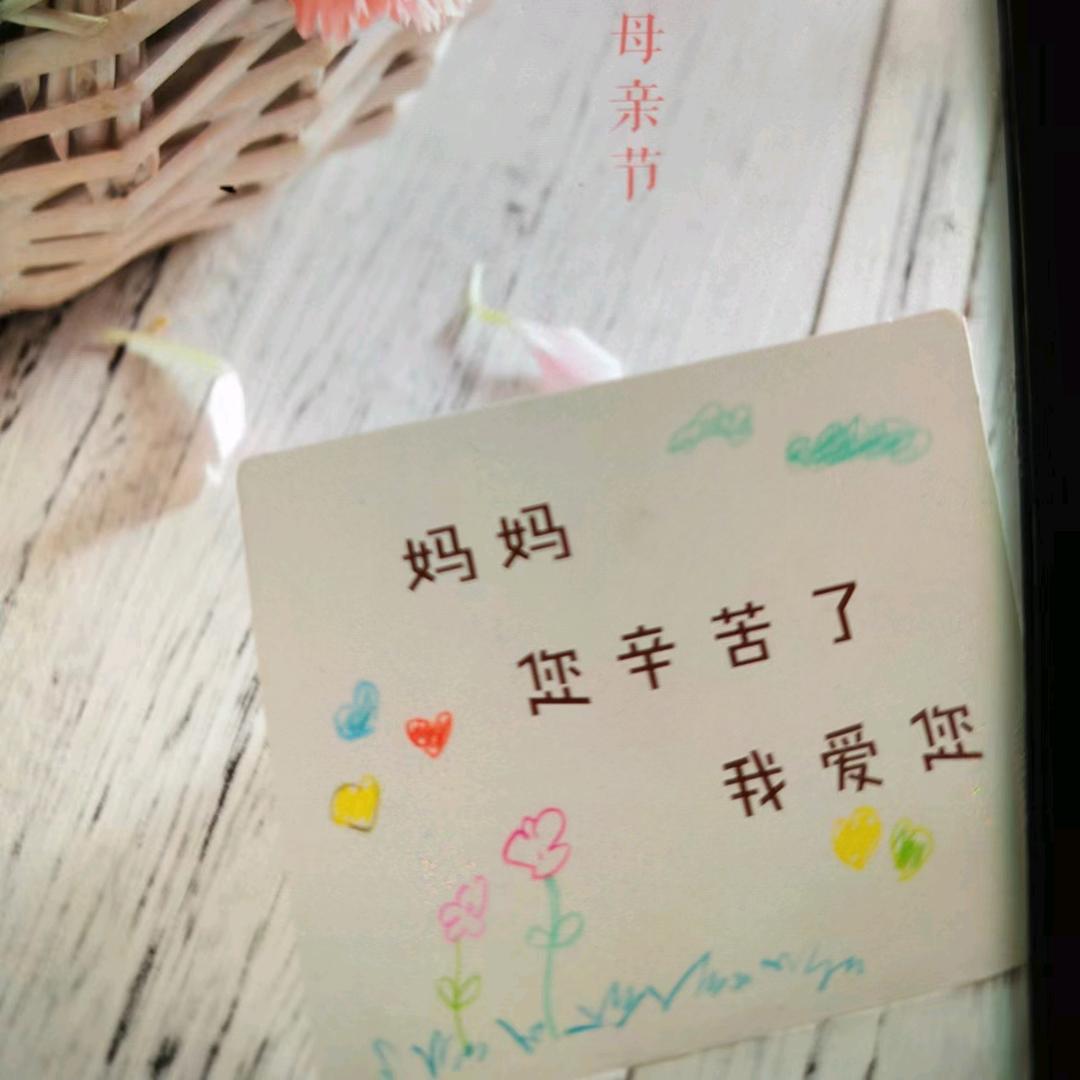 母亲节
妈妈
您辛苦了
我爱您